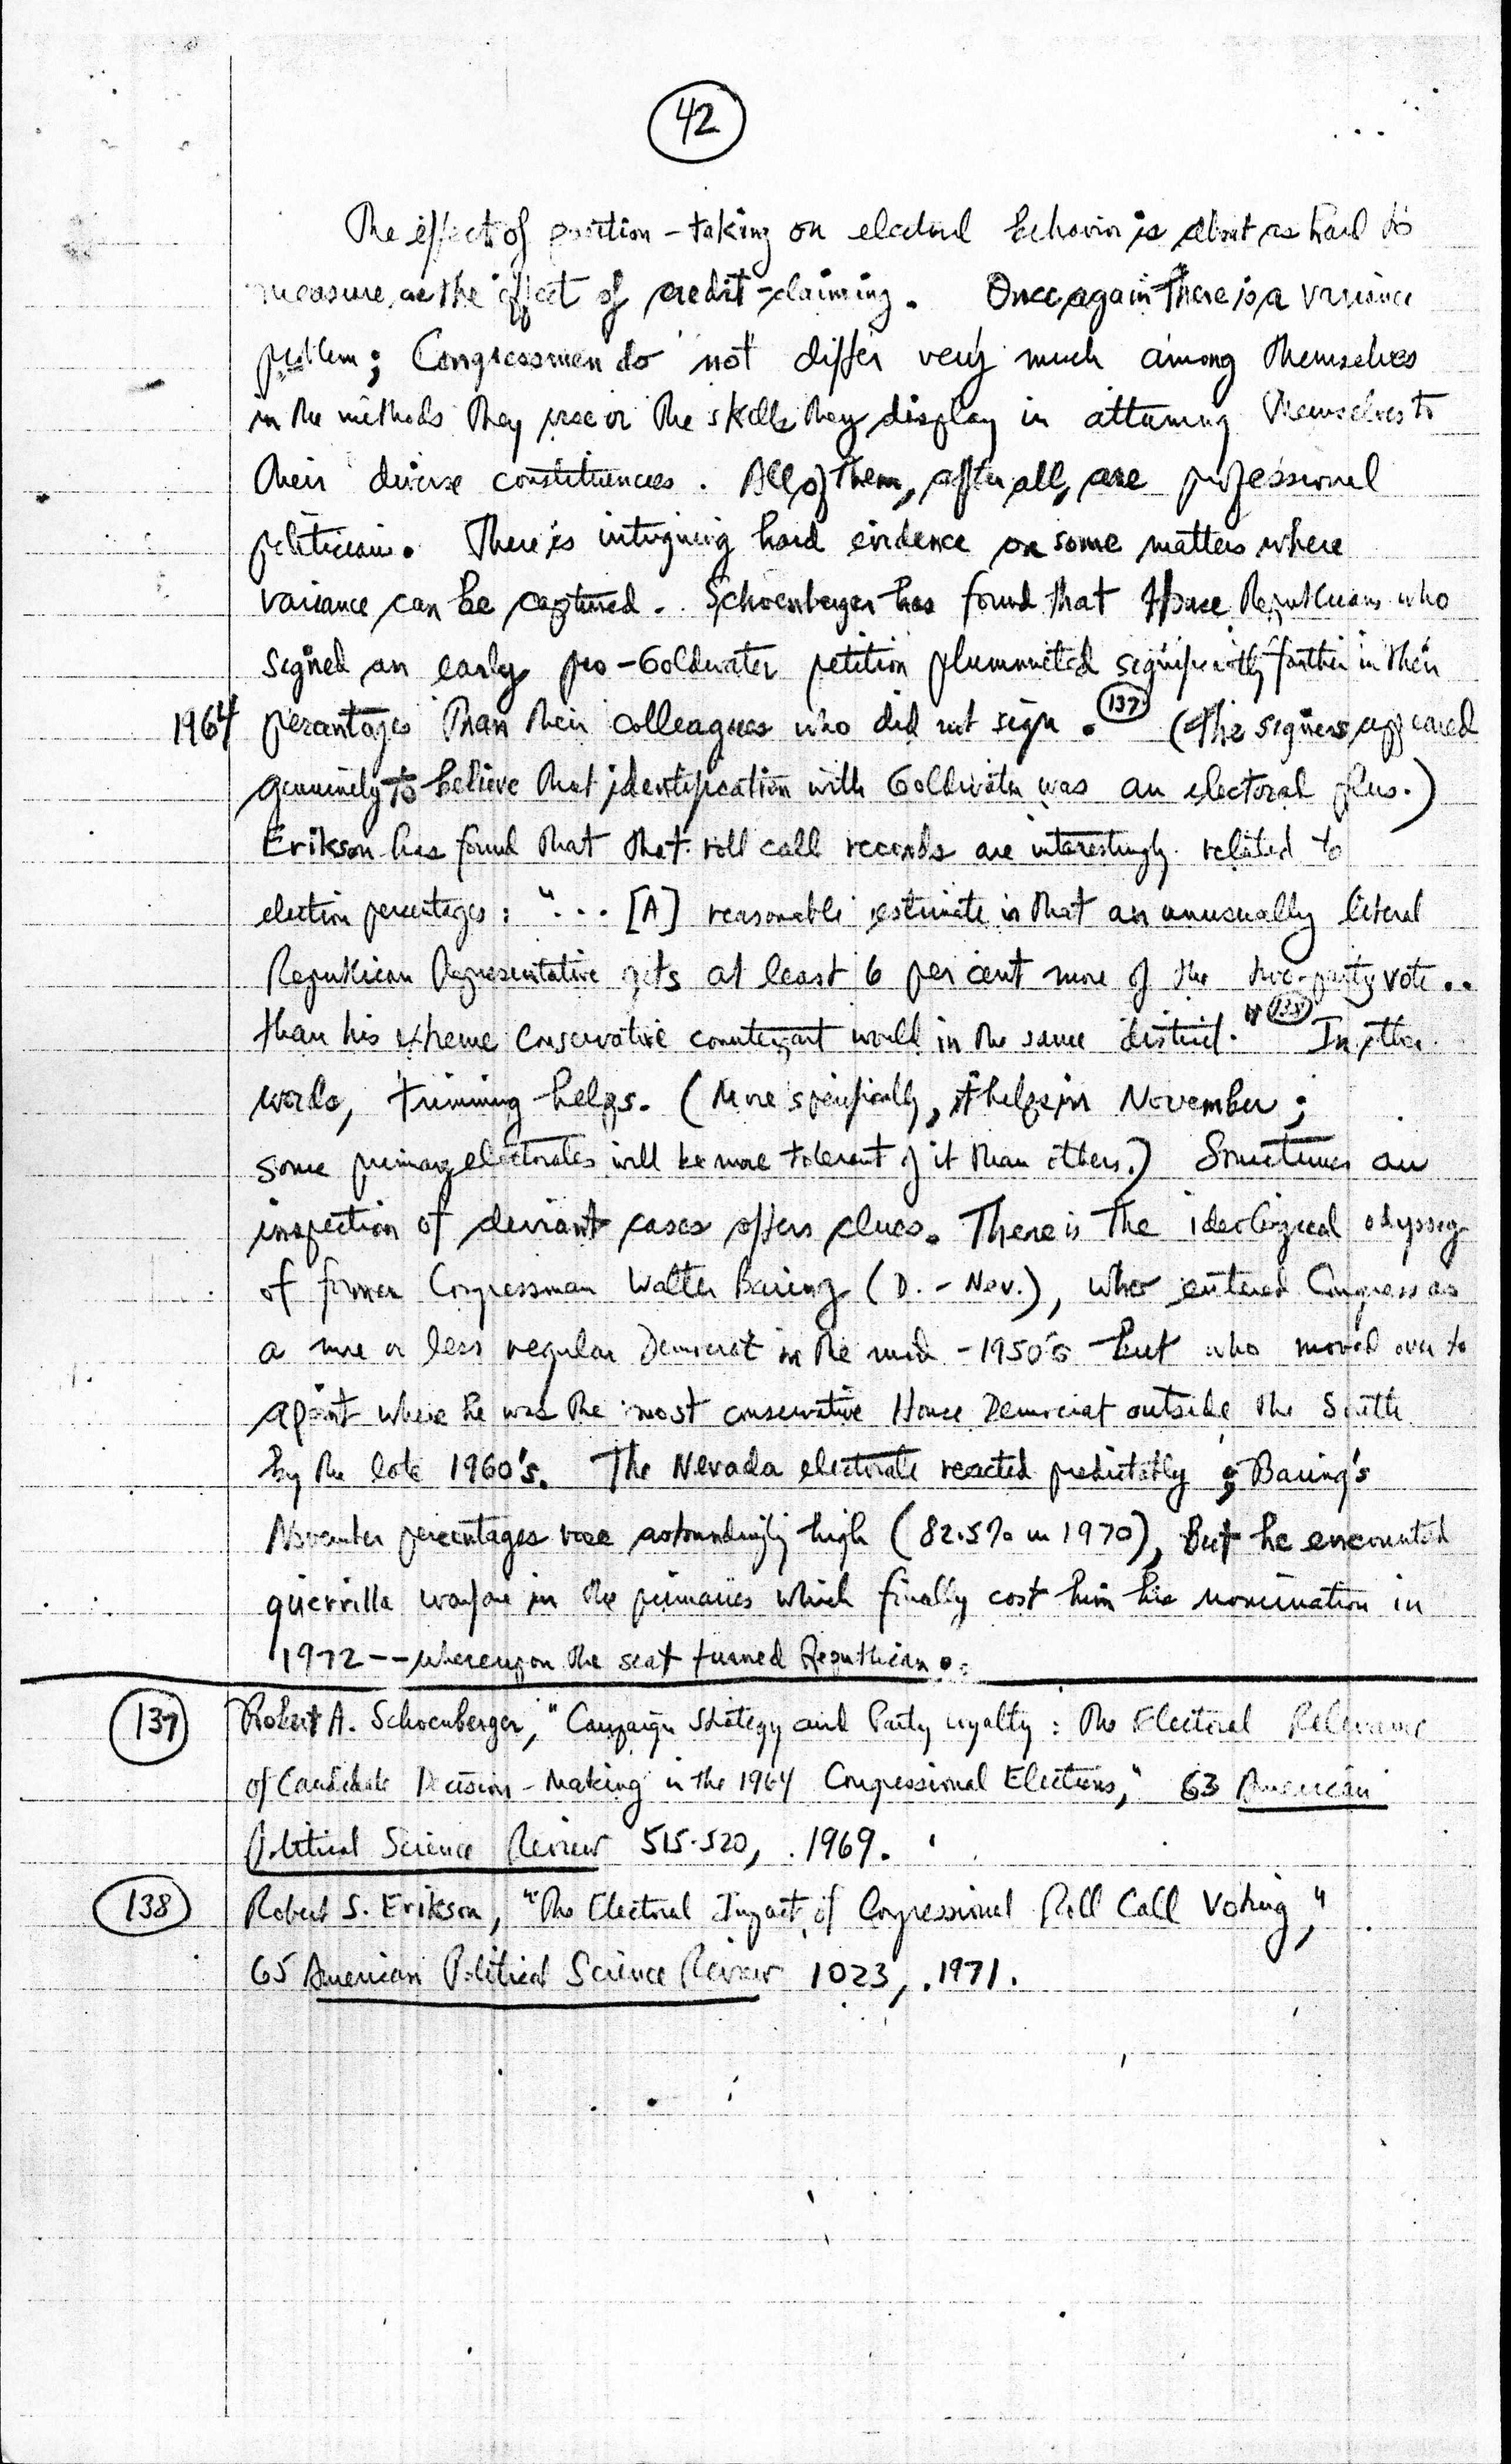 42
The effect of position-taking on electoral behavior is about as hard to
measure as the effect of credit-claiming. Once again there is a variance
problem; Congressmen do not differ very much among themselves
in the methods they use or the skills they display in attuning themselves to
their diverse constituencies. All of them, after all, are professional
politicians. There is intriguing hard evidence on some matters where
variance can be captured. Schoenberger has found that House Republicans who
signed an early pro-Goldwater petition plummeted significantly farther in their
1964 percentages than their colleagues who did not sign. 137 (The signers appeared
genuinely to believe that identification with Goldwater was an electoral plus.)
Erikson has found that that roll call records are interestingly related to
election percentages: "... [A] reasonable estimate is that an unusually liberal
Republican Representative gets at least 6 per cent more of the two-party vote..
than his extreme conservative counterpart would in the same district." 138 In other
words, trimming helps. (More specifically, it helps in November;
some primary electorates will be more tolerant of it than others.) Sometimes an
inspection of deviant cases offers clues. There is the ideological odyssey
of former Congressman Walter Baring (D. - Nev.), who entered Congress as
a more or less regular Democrat in the mid-1950's but who moved over to
a point where he was the most conservative House Democrat outside the South
by the late 1960's. The Nevada electorate reacted predictably; Baring's
November percentages were astoundingly high (82.5% in 1970), but he encountered
guerrilla warfare in the primaries which finally cost him his nomination in
1972 -- whereupon the seat turned Republican.
137 Robert A. Schoenberger, "Campaign Strategy and Party Loyalty: The Electoral Relevance
of Candidate Decision-Making in the 1964 Congressional Elections," 63 American
Political Science Review 515-520, 1969.
138 Robert S. Erikson, "The Electoral Impact of Congressional Roll Call Voting,"
65 American Political Science Review 1023, 1971.